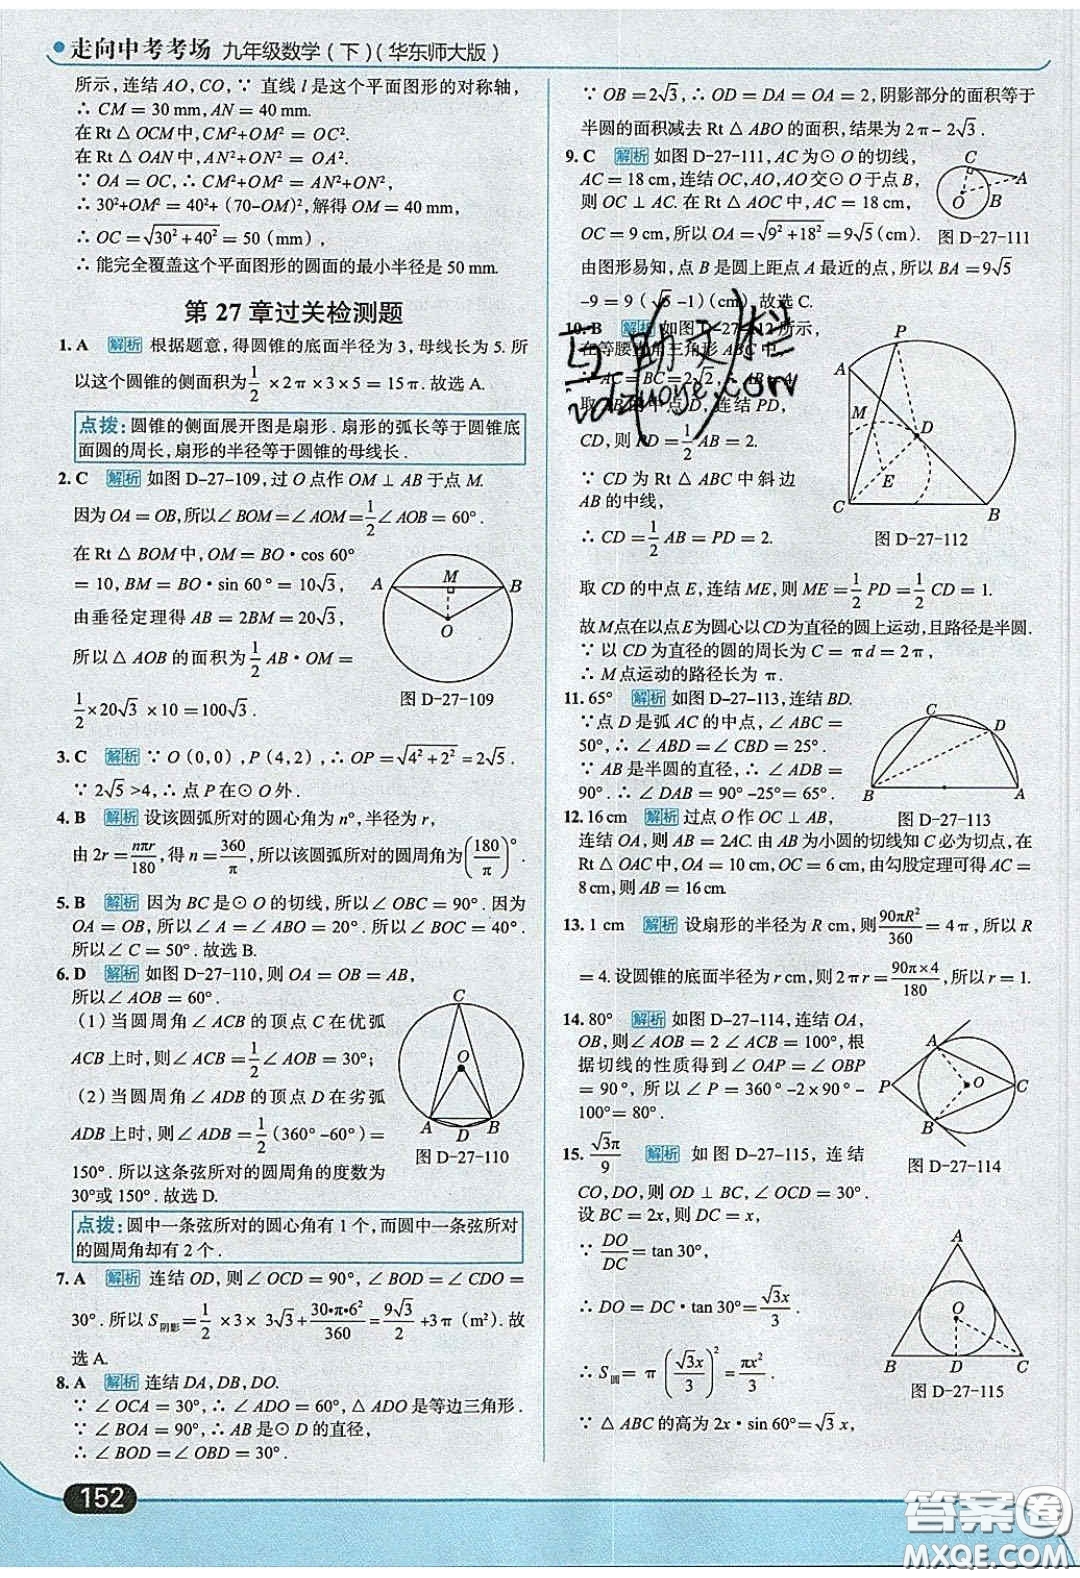 走向中考考场 九年级数学(下)(华东师大版)
所示,连结AO,CO,∵ 直线l是这个平面图形的对称轴,
∴ CM=30 mm,AN=40 mm.
在Rt△OCM中,CM²+OM²=OC².
在Rt△OAN中,AN²+ON²=OA².
∵ OA=OC,∴ CM²+OM²=AN²+ON²,
∴ 30²+OM²=40²+(70-OM)²,解得OM=40 mm,
∴ OC=√(30²+40²)=50(mm),
∴ 能完全覆盖这个平面图形的圆面的最小半径是50 mm.
第27章过关检测题
1.A 解析 根据题意,得圆锥的底面半径为3,母线长为5.所
以这个圆锥的侧面积为1/2×2π×3×5=15π.故选A.
点拨:圆锥的侧面展开图是扇形.扇形的弧长等于圆锥底
面圆的周长,扇形的半径等于圆锥的母线长.
2.C 解析 如图D-27-109,过O点作OM⊥AB于点M.
因为OA=OB,所以∠BOM=∠AOM=1/2∠AOB=60°.
在Rt△BOM中,OM=BO·cos 60°
=10,BM=BO·sin 60°=10√3,
由垂径定理得AB=2BM=20√3,
所以△AOB的面积为1/2AB·OM=
1/2×20√3×10=100√3.
A M B
O
图D-27-109
3.C 解析 ∵ O(0,0),P(4,2),∴ OP=√(4²+2²)=2√5.
∵ 2√5>4,∴ 点P在⊙O外.
4.B 解析 设该圆弧所对的圆心角为n°,半径为r,
由2r=nπr/180,得n=360/π,所以该圆弧所对的圆周角为(180/π)°.
5.B 解析 因为BC是⊙O的切线,所以∠OBC=90°.因为
OA=OB,所以∠A=∠ABO=20°.所以∠BOC=40°.
所以∠C=50°.故选B.
6.D 解析 如图D-27-110,则OA=OB=AB,
所以∠AOB=60°.
(1)当圆周角∠ACB的顶点C在优弧
ACB上时,则∠ACB=1/2∠AOB=30°;
(2)当圆周角∠ADB的顶点D在劣弧
ADB上时,则∠ADB=1/2(360°-60°)=
150°.所以这条弦所对的圆周角的度数为
30°或150°.故选D.
C
O
A D B
图D-27-110
点拨:圆中一条弦所对的圆心角有1个,而圆中一条弦所对
的圆周角却有2个.
7.A 解析 连结OD,则∠OCD=90°,∠BOD=∠CDO=
30°.所以S阴影=1/2×3×3√3+30·π·6²/360=9√3/2+3π(m²).故
选A.
8.A 解析 连结DA,DB,DO.
∵ ∠OCA=30°,∴ ∠ADO=60°,△ADO是等边三角形.
∵ ∠BOA=90°,∴ AB是⊙D的直径,
∴ ∠BOD=∠OBD=30°.
152
∵ OB=2√3,∴ OD=DA=OA=2,阴影部分的面积等于
半圆的面积减去Rt△ABO的面积,结果为2π-2√3.
9.C 解析 如图D-27-111,AC为⊙O的切线,
AC=18 cm,连结OC,AO,AO交⊙O于点B,
则OC⊥AC.在Rt△AOC中,AC=18 cm,
OC=9 cm,所以OA=√(9²+18²)=9√5(cm).
C
A
O
B
图D-27-111
由图形易知,点B是圆上距点A最近的点,所以BA=9√5
-9=9(√5-1)(cm).故选C.
10.B 解析 如图D-27-112所示,
在等腰直角三角形ABC中,
∵ AC=BC=2√2,∴ AB=4.
取AB的中点D,连结PD,
CD,则PD=1/2AB=2.
∵ CD为Rt△ABC中斜边
AB的中线,
∴ CD=1/2AB=PD=2.
P
A
M
D
E
C B
图D-27-112
取CD的中点E,连结ME,则ME=1/2PD=1/2CD=1.
故M点在以点E为圆心以CD为直径的圆上运动,且路径是半圆.
∵ 以CD为直径的圆的周长为C=πd=2π,
∴ M点运动的路径长为π.
11.65° 解析 如图D-27-113,连结BD.
∵点D是弧AC的中点,∠ABC=
50°,∴ ∠ABD=∠CBD=25°.
∵ AB是半圆的直径,∴ ∠ADB=
90°.∴ ∠DAB=90°-25°=65°.
C
D
B A
图D-27-113
12.16 cm 解析 过点O作OC⊥AB,
连结OA,则AB=2AC.由AB为小圆的切线知C必为切点,在
Rt△OAC中,OA=10 cm,OC=6 cm,由勾股定理可得AC=
8 cm,则AB=16 cm.
13.1 cm 解析 设扇形的半径为R cm,则90πR²/360=4π,所以R
=4.设圆锥的底面半径为r cm,则2πr=90π×4/180,所以r=1.
14.80° 解析 如图D-27-114,连结OA,
OB,则∠AOB=2∠ACB=100°,根
据切线的性质得到∠OAP=∠OBP
=90°,所以∠P=360°-2×90°-
100°=80°.
A
P O C
B
图D-27-114
15.√3π/9 解析 如图D-27-115,连结
CO,DO,则OD⊥BC,∠OCD=30°.
设BC=2x,则DC=x,
∵ DO/DC=tan 30°,
∴ DO=DC·tan 30°=√3x/3.
∴ S圆=π(√3x/3)²=πx²/3.
∵ △ABC的高为2x·sin 60°=√3x,
A
O
B D C
图D-27-115
互助文栏
答案圈
MXQE.COM